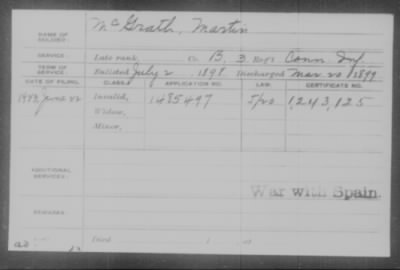 NAME OF SOLDIER: McGrath, Martin
SERVICE: Late rank, Co. B, 3 Reg't Conn Inf
TERM OF SERVICE: Enlisted July 2, 1898 Discharged Mar. 20 1899
DATE OF FILING. CLASS. APPLICATION NO. LAW. CERTIFICATE NO.
June 22 Invalid, 1485497 1,243,125
Widow,
Minor,
ADDITIONAL SERVICES:
War with Spain.
REMARKS:
Died